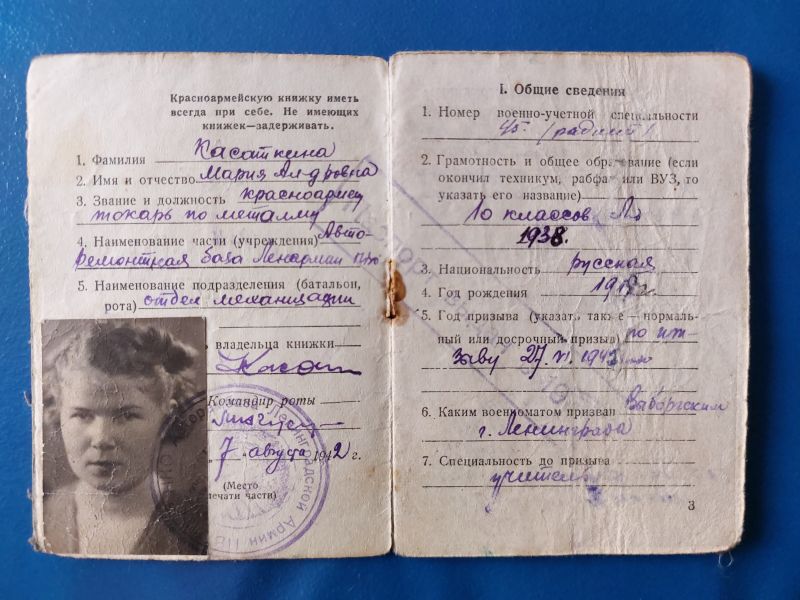 Красноармейскую книжку иметь
всегда при себе. Не имеющих
книжек—задерживать.
1. Фамилия Касаткина
2. Имя и отчество Мария Ал-дровна
3. Звание и должность красноармеец
токарь по металлу
4. Наименование части (учреждения) Авто-
Ремонтная база Ленармии
5. Наименование подразделения (батальон,
рота) отдел механизации
владельца книжки Касат
Командир роты
7 августа 1942 г.
(Место
печати части)
Ленинградской Армии
I. Общие сведения
1. Номер военно-учетной специальности
45
2. Грамотность и общее образование (если
окончил техникум, рабфак или ВУЗ, то
указать его название)
10 классов
1938.
3. Национальность русская
4. Год рождения г.
5. Год призыва (указать также — нормаль-
ный или досрочный призыв) по
27. 194
6. Каким военкоматом призван Выборгским
г. Ленинграда
7. Специальность до призыва
учитель
3